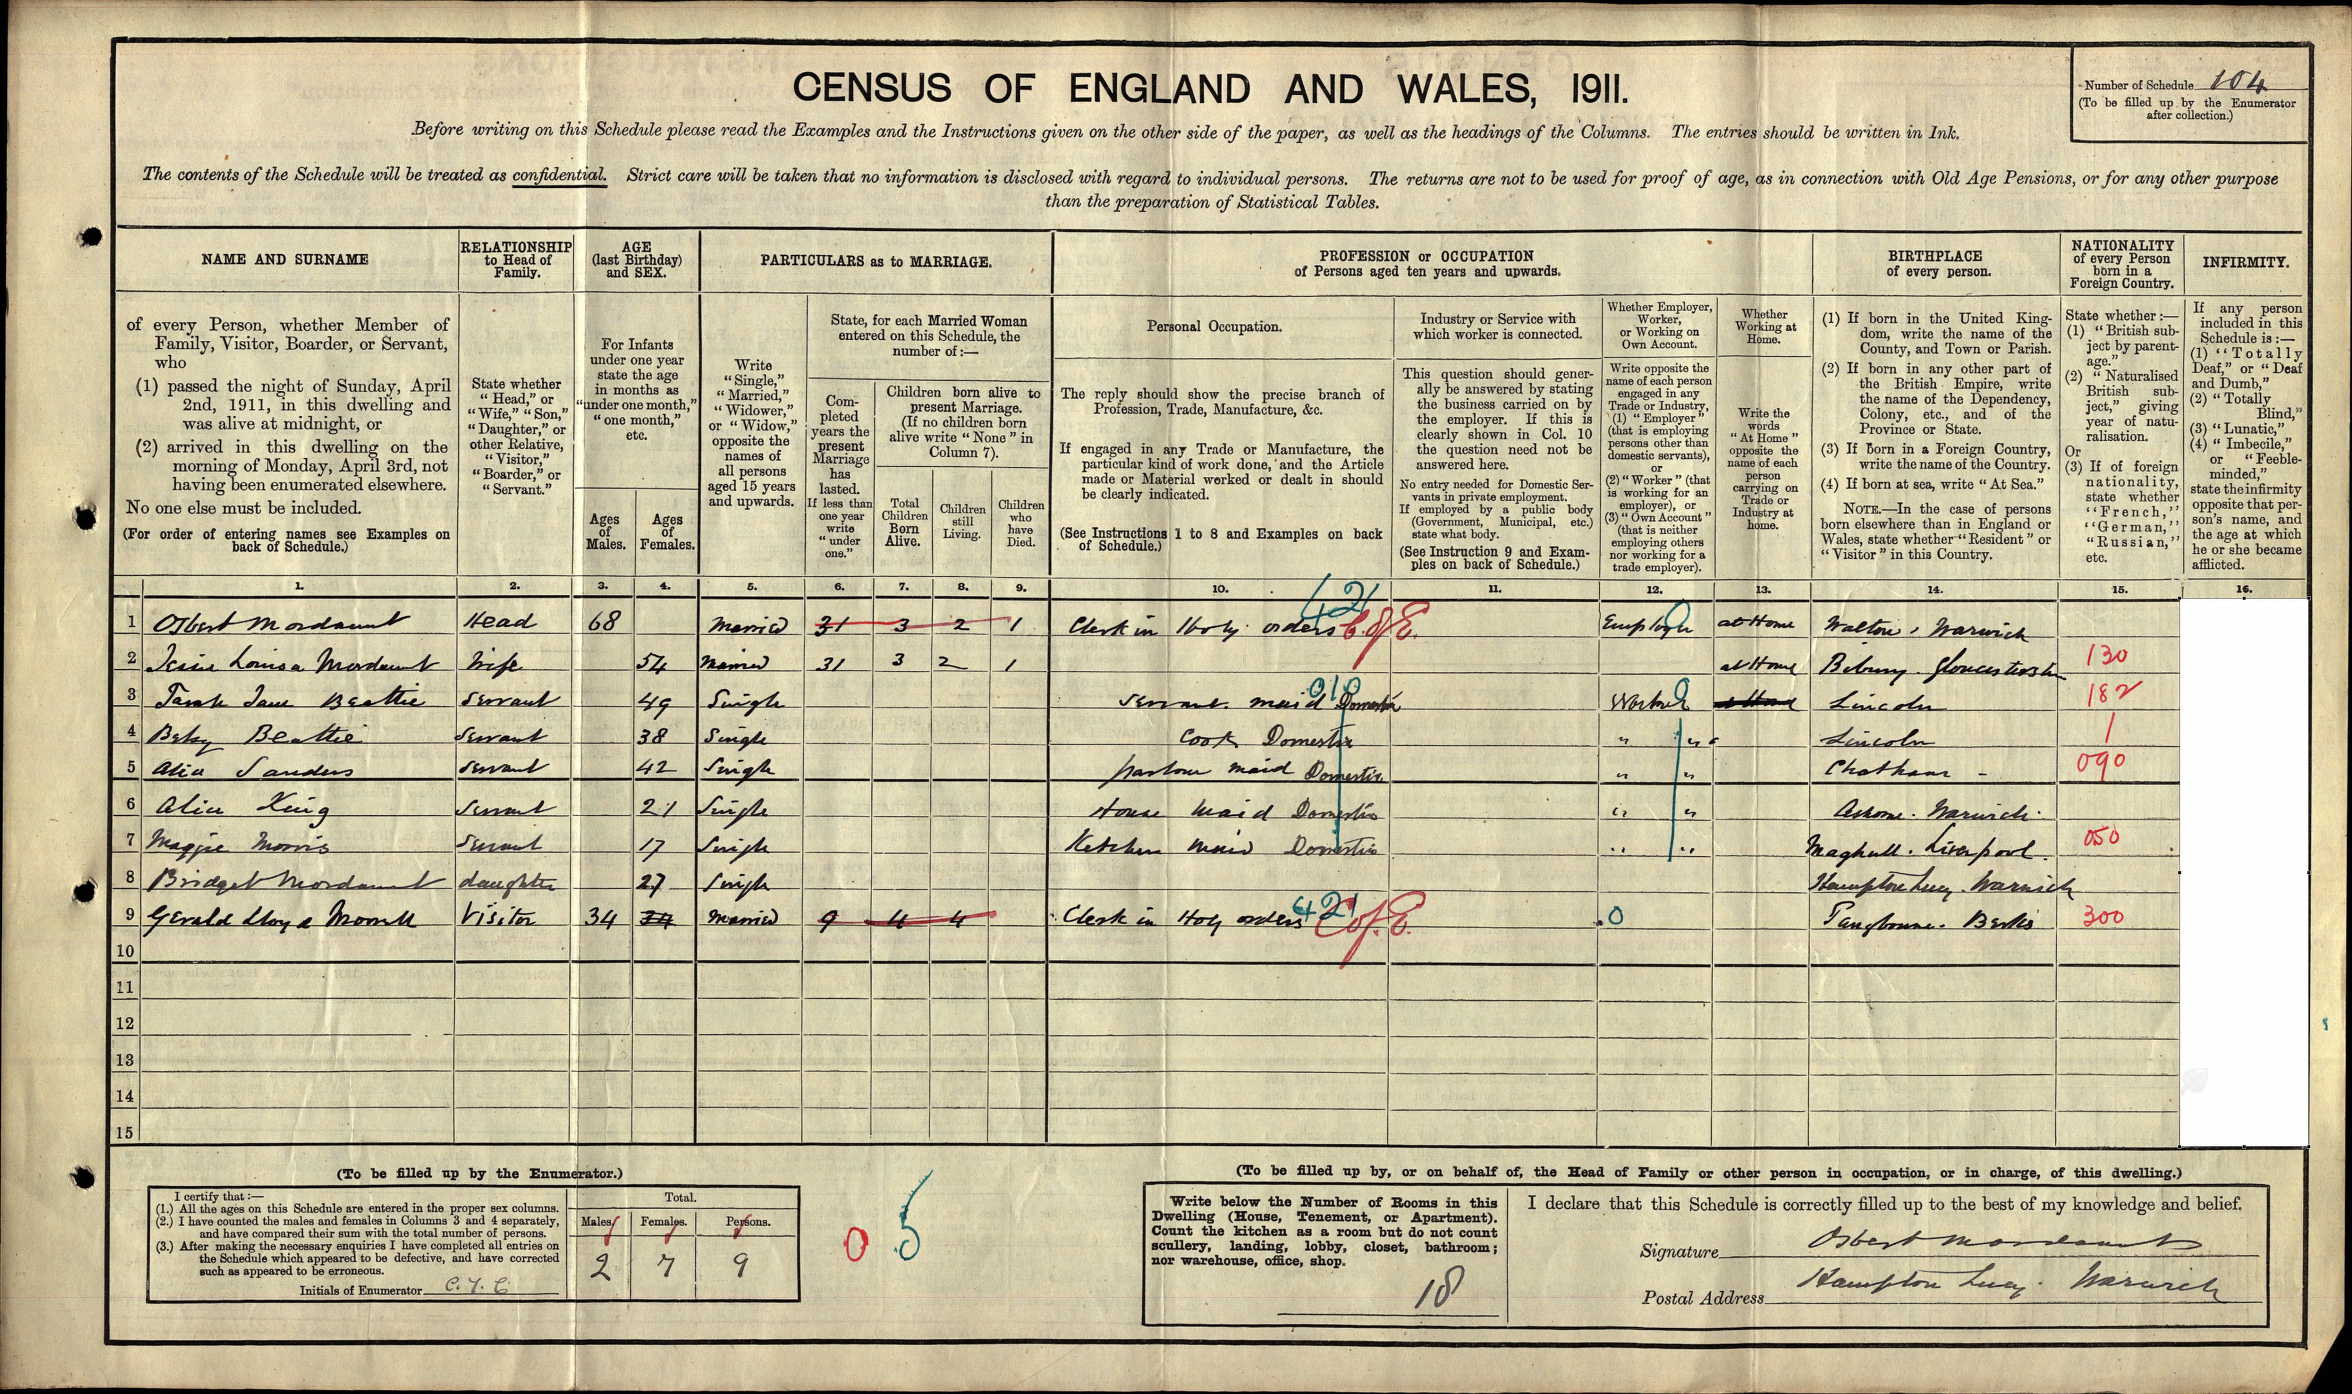 CENSUS OF ENGLAND AND WALES, 1911.
Number of Schedule 104
(To be filled up by the Enumerator
after collection.)
Before writing on this Schedule please read the Examples and the Instructions given on the other side of the paper, as well as the headings of the Columns. The entries should be written in Ink.
The contents of the Schedule will be treated as confidential. Strict care will be taken that no information is disclosed with regard to individual persons. The returns are not to be used for proof of age, as in connection with Old Age Pensions, or for any other purpose
than the preparation of Statistical Tables.
NAME AND SURNAME
of every Person, whether Member of
Family, Visitor, Boarder, or Servant,
who
(1) passed the night of Sunday, April
2nd, 1911, in this dwelling and
was alive at midnight, or
(2) arrived in this dwelling on the
morning of Monday, April 3rd, not
having been enumerated elsewhere.
No one else must be included.
(For order of entering names see Examples on
back of Schedule.)
RELATIONSHIP
to Head of
Family.
State whether
"Head," or
"Wife," "Son,"
"Daughter," or
other Relative,
"Visitor,"
"Boarder," or
"Servant."
AGE
(last Birthday)
and SEX.
For Infants
under one year
state the age
in months as
"under one month,"
"one month,"
etc.
Ages
of
Males.
Ages
of
Females.
PARTICULARS as to MARRIAGE.
Write
"Single,"
"Married,"
"Widower,"
or "Widow,"
opposite the
names of
all persons
aged 15 years
and upwards.
State, for each Married Woman
entered on this Schedule, the
number of:—
Com-
pleted
years the
present
Marriage
has
lasted.
If less than
one year
write
"under
one."
Children born alive to
present Marriage.
(If no children born
alive write "None" in
Column 7).
Total
Children
Born
Alive.
Children
still
Living.
Children
who
have
Died.
PROFESSION or OCCUPATION
of Persons aged ten years and upwards.
Personal Occupation.
The reply should show the precise branch of
Profession, Trade, Manufacture, &c.
If engaged in any Trade or Manufacture, the
particular kind of work done, and the Article
made or Material worked or dealt in should
be clearly indicated.
(See Instructions 1 to 8 and Examples on back
of Schedule.)
Industry or Service with
which worker is connected.
This question should gener-
ally be answered by stating
the business carried on by
the employer. If this is
clearly shown in Col. 10
the question need not be
answered here.
No entry needed for Domestic Ser-
vants in private employment.
If employed by a public body
(Government, Municipal, etc.)
state what body.
(See Instruction 9 and Exam-
ples on back of Schedule.)
Whether Employer,
Worker,
or Working on
Own Account.
Write opposite the
name of each person
engaged in any
Trade or Industry,
(1) "Employer"
(that is employing
persons other than
domestic servants),
or
(2) "Worker" (that
is working for an
employer), or
(3) "Own Account"
(that is neither
employing others
nor working for a
trade employer).
Whether
Working at
Home.
Write the
words
"At Home"
opposite the
name of each
person
carrying on
Trade or
Industry at
home.
BIRTHPLACE
of every person.
(1) If born in the United King-
dom, write the name of the
County, and Town or Parish.
(2) If born in any other part of
the British Empire, write
the name of the Dependency,
Colony, etc., and of the
Province or State.
(3) If born in a Foreign Country,
write the name of the Country.
(4) If born at sea, write "At Sea."
NOTE.—In the case of persons
born elsewhere than in England or
Wales, state whether "Resident" or
"Visitor" in this Country.
NATIONALITY
of every Person
born in a
Foreign Country.
State whether:—
(1) "British sub-
ject by parent-
age."
(2) "Naturalised
British sub-
ject," giving
year of natu-
ralisation.
Or
(3) If of foreign
nationality,
state whether
"French,"
"German,"
"Russian,"
etc.
INFIRMITY.
If any person
included in this
Schedule is:—
(1) "Totally
Deaf," or "Deaf
and Dumb,"
(2) "Totally
Blind,"
(3) "Lunatic,"
(4) "Imbecile,"
or "Feeble-
minded,"
state the infirmity
opposite that per-
son's name, and
the age at which
he or she became
afflicted.
1. 2. 3. 4. 5. 6. 7. 8. 9. 10. 11. 12. 13. 14. 15. 16.
1 Osbert Mordaunt Head 68 Married 31 3 2 1 Clerk in Holy orders C of E. 421 Employer 0 at Home Walton, Warwick
2 Jessie Louisa Mordaunt Wife 54 Married 31 3 2 1 at Home Bibury. Gloucestershire 130
3 Sarah Jane Beattie Servant 49 Single Servant maid Domestic 010 Worker 0 at Home Lincoln 182
4 Betsy Beattie Servant 38 Single Cook Domestic " " Lincoln 1
5 Alice Sanders Servant 42 Single parlour maid Domestic " " Chatham - 090
6 Alice King Servant 21 Single House Maid Domestic " " Warwick.
7 Maggie Morris Servant 17 Single Kitchen Maid Domestic " " Maghull. Liverpool. 050
8 Bridget Mordaunt daughter 27 Single Hampton Lucy. Warwick
9 Gerald Lloyd Visitor 34 34 Married 9 4 4 Clerk in Holy orders 421 C of. E. 0 Pangbourne. Berks 300
10
11
12
13
14
15
(To be filled up by the Enumerator.)
I certify that:—
(1.) All the ages on this Schedule are entered in the proper sex columns.
(2.) I have counted the males and females in Columns 3 and 4 separately,
and have compared their sum with the total number of persons.
(3.) After making the necessary enquiries I have completed all entries on
the Schedule which appeared to be defective, and have corrected
such as appeared to be erroneous.
Initials of Enumerator
Total.
Males. Females. Persons.
2 7 9
0 5
(To be filled up by, or on behalf of, the Head of Family or other person in occupation, or in charge, of this dwelling.)
Write below the Number of Rooms in this
Dwelling (House, Tenement, or Apartment).
Count the kitchen as a room but do not count
scullery, landing, lobby, closet, bathroom;
nor warehouse, office, shop.
18
I declare that this Schedule is correctly filled up to the best of my knowledge and belief.
Signature Osbert Mordaunt
Postal Address Hampton Lucy. Warwick